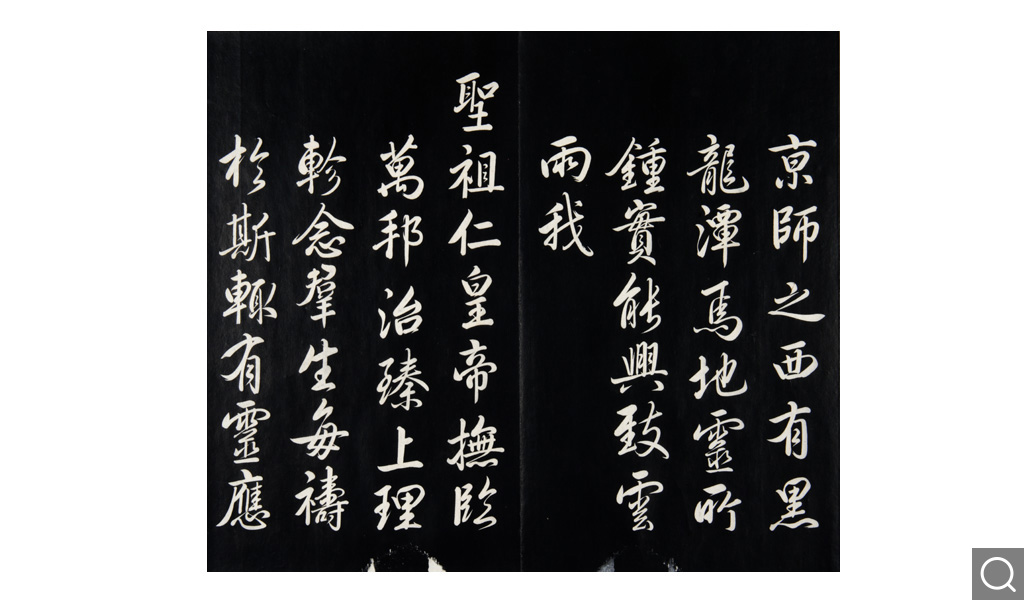 京師之西有黑
龍潭焉地靈所
鍾實能興致雲
雨我
聖祖仁皇帝撫臨
萬邦治臻上理
軫念羣生每禱
於斯輒有靈應